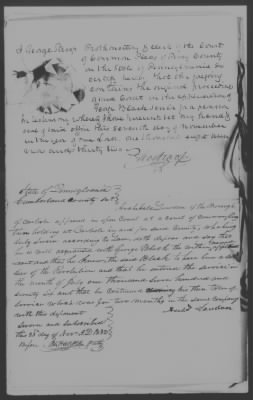 I George Stroop Prothonotary & Clerk of the Court
of Common Pleas of Perry County
in the State of Pennsylvania do
certify that the foregoing
contains the original proceedings
of said Court in the application of
George Black Senior for a pension
In testimony whereof I have hereunto set my hand &
seal of said office this Seventh day of November
in the year of our Lord one thousand eight hundred
and thirty two
G Stroop
State of Pennsylvania
Cumberland County Ss
Archibald Loudon of the Borough
of Carlisle appeared in open Court at a Court of Common Pleas
held at Carlisle in and for said County, who being
duly sworn according to Law, doth depose and say that
he is well acquainted with George Black the within
and that he knows the said Black to have been a soldier
of the Revolution and that he entered the service in
the month of July one thousand seven hundred and
seventy six and that he continued his then term of
service which was for two months in the same company
with this deponent
Sworn and Subscribed
this day of Nov. A.D. 1832
Before
Archd Loudon